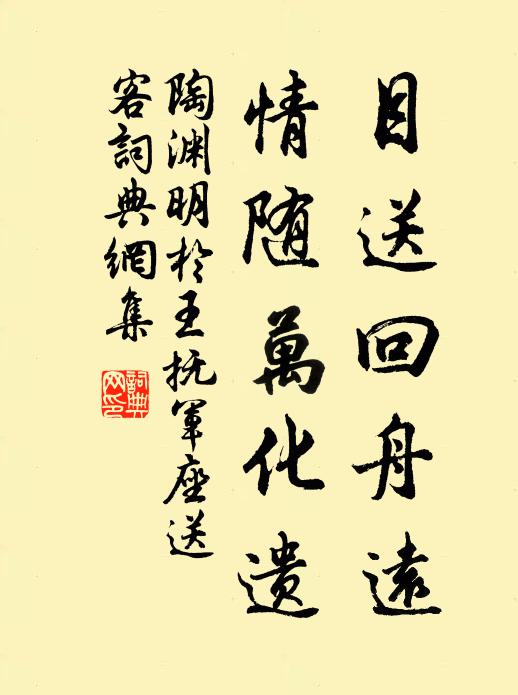 目送回舟遠
情随萬化遺
陶渊明於王抚軍座送
客詞典網集
詞典
网印